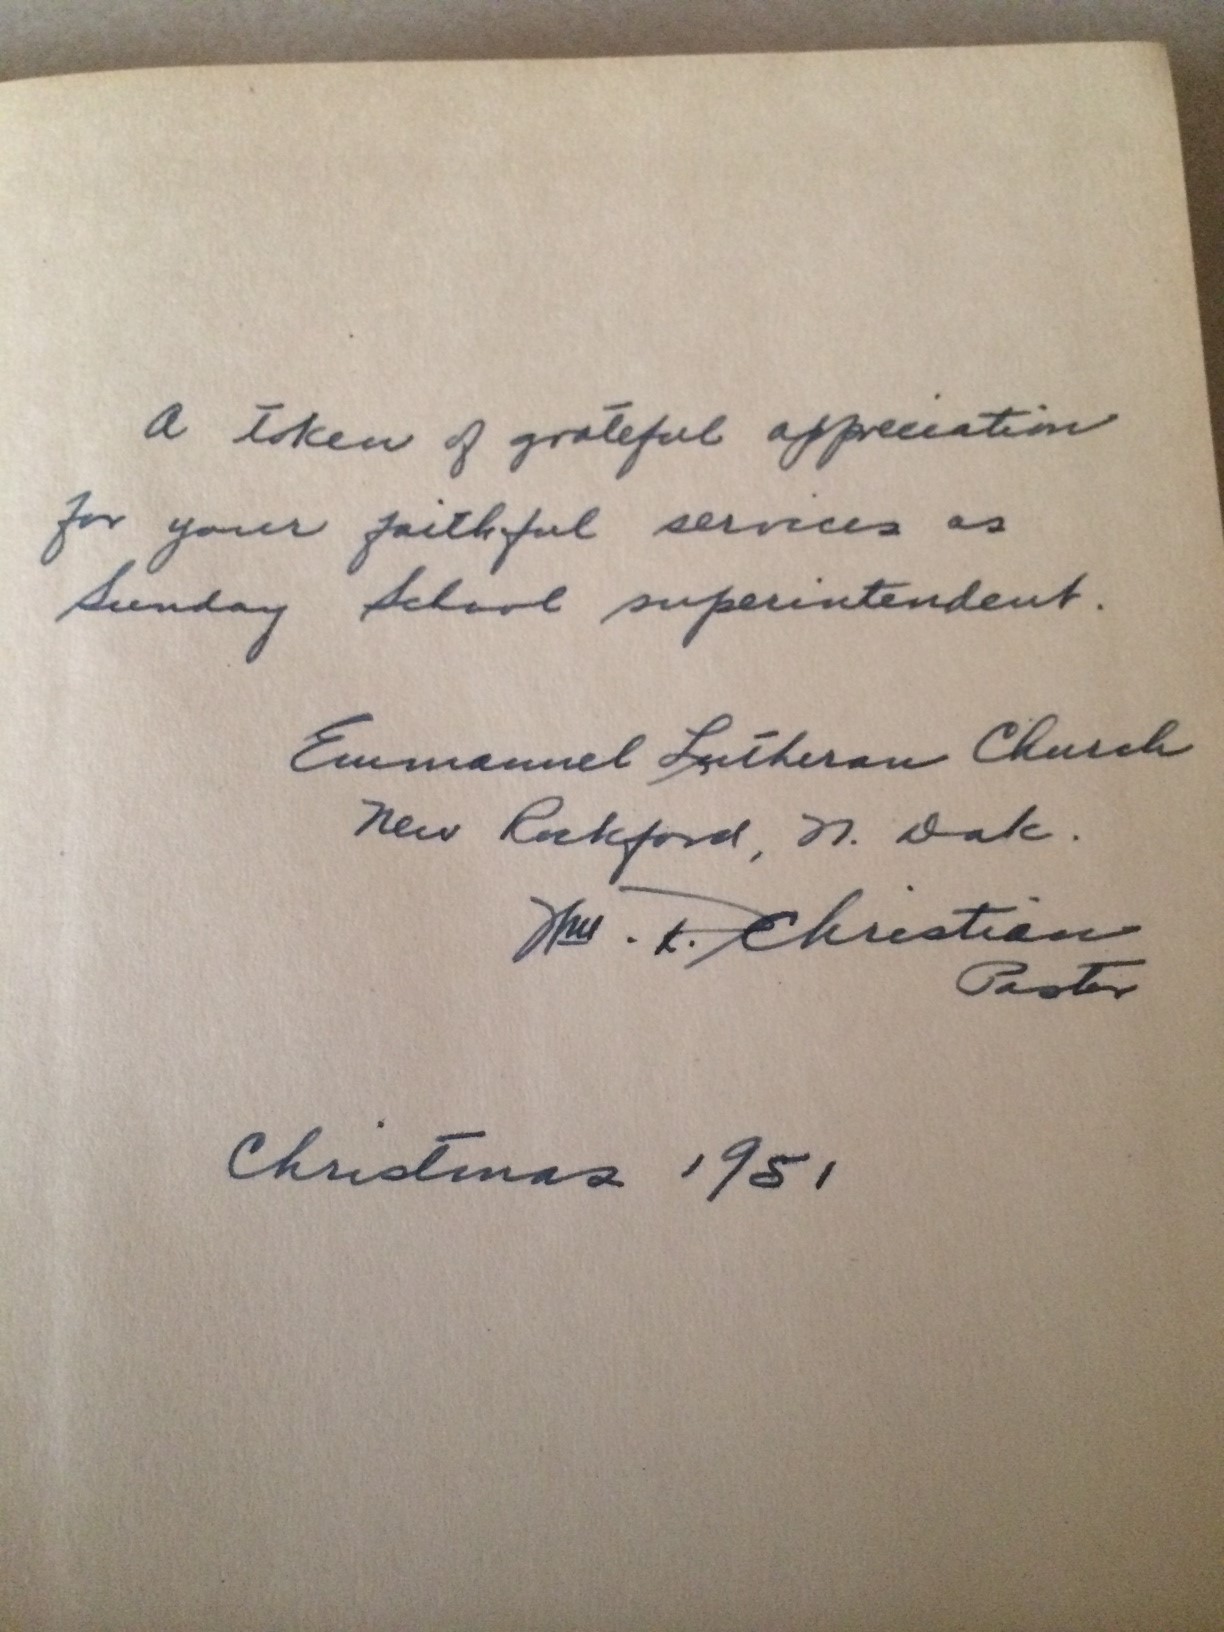 A token of grateful appreciation
for your faithful services as
Sunday School superintendent.
Emmanuel Lutheran Church
New Rockford, N. Dak.
Wm. K. Christian
Pastor
Christmas 1951